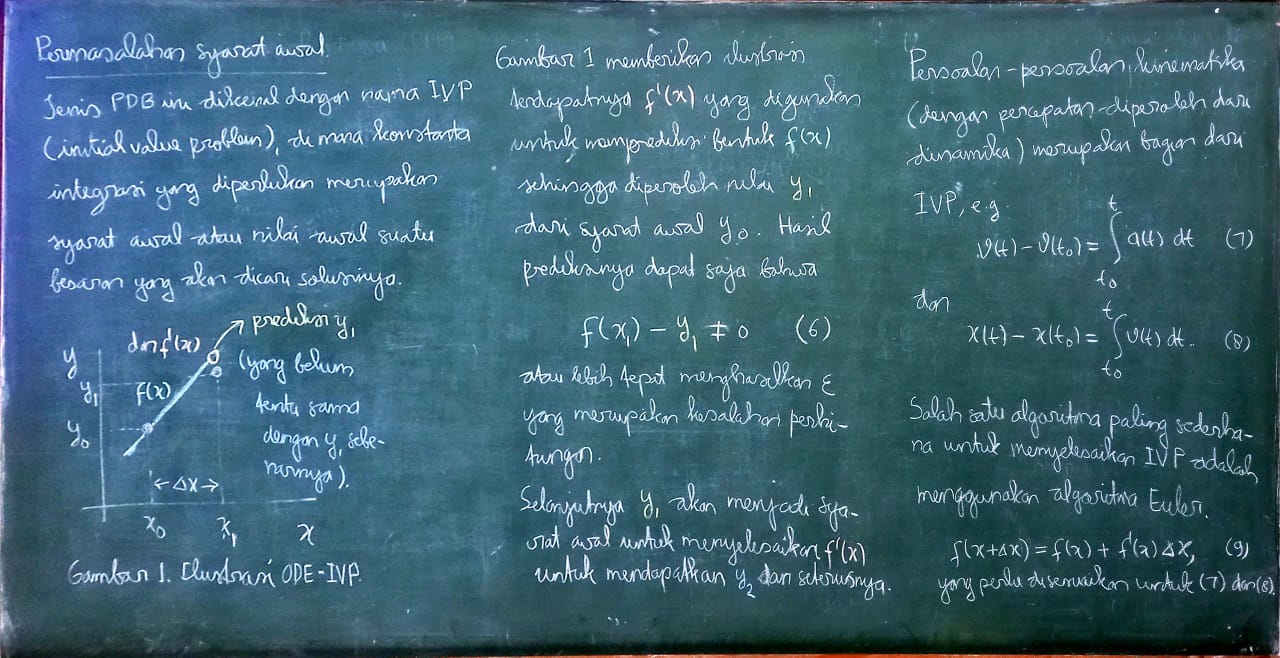 Permasalahan syarat awal.
Jenis PDB ini dikenal dengan nama IVP
(initial value problem), di mana konstanta
integrasi yang diperlukan merupakan
syarat awal atau nilai awal suatu
besaran yang akan dicari solusinya.
prediksi y₁
(yang belum
tentu sama
dengan y₁ sebe-
narnya).
dari f'(x)
f(x)
y
y₁
y₀
Δx
x₀ x₁ x
Gambar 1. Ilustrasi ODE-IVP.
Gambar 1 memberikan ilustrasi
terdapatnya f'(x) yang digunakan
untuk memprediksi bentuk f(x)
sehingga diperoleh nilai y₁
dari syarat awal y₀. Hasil
prediksinya dapat saja bahwa
f(x₁) – y₁ ≠ 0 (6)
atau lebih tepat menghasilkan ε
yang merupakan kesalahan perhi-
tungan.
Selanjutnya y₁ akan menjadi sya-
rat awal untuk menyelesaikan f'(x)
untuk mendapatkan y₂ dan seterusnya.
Persoalan-persoalan kinematika
(dengan percepatan diperoleh dari
dinamika) merupakan bagian dari
IVP, e.g.
v(t) – v(t₀) = ∫_{t₀}^{t} a(t) dt (7)
dan
x(t) – x(t₀) = ∫_{t₀}^{t} v(t) dt. (8)
Salah satu algoritma paling sederha-
na untuk menyelesaikan IVP adalah
menggunakan algoritma Euler.
f(x+Δx) = f(x) + f'(x) Δx, (9)
yang perlu disesuaikan untuk (7) dan (8).